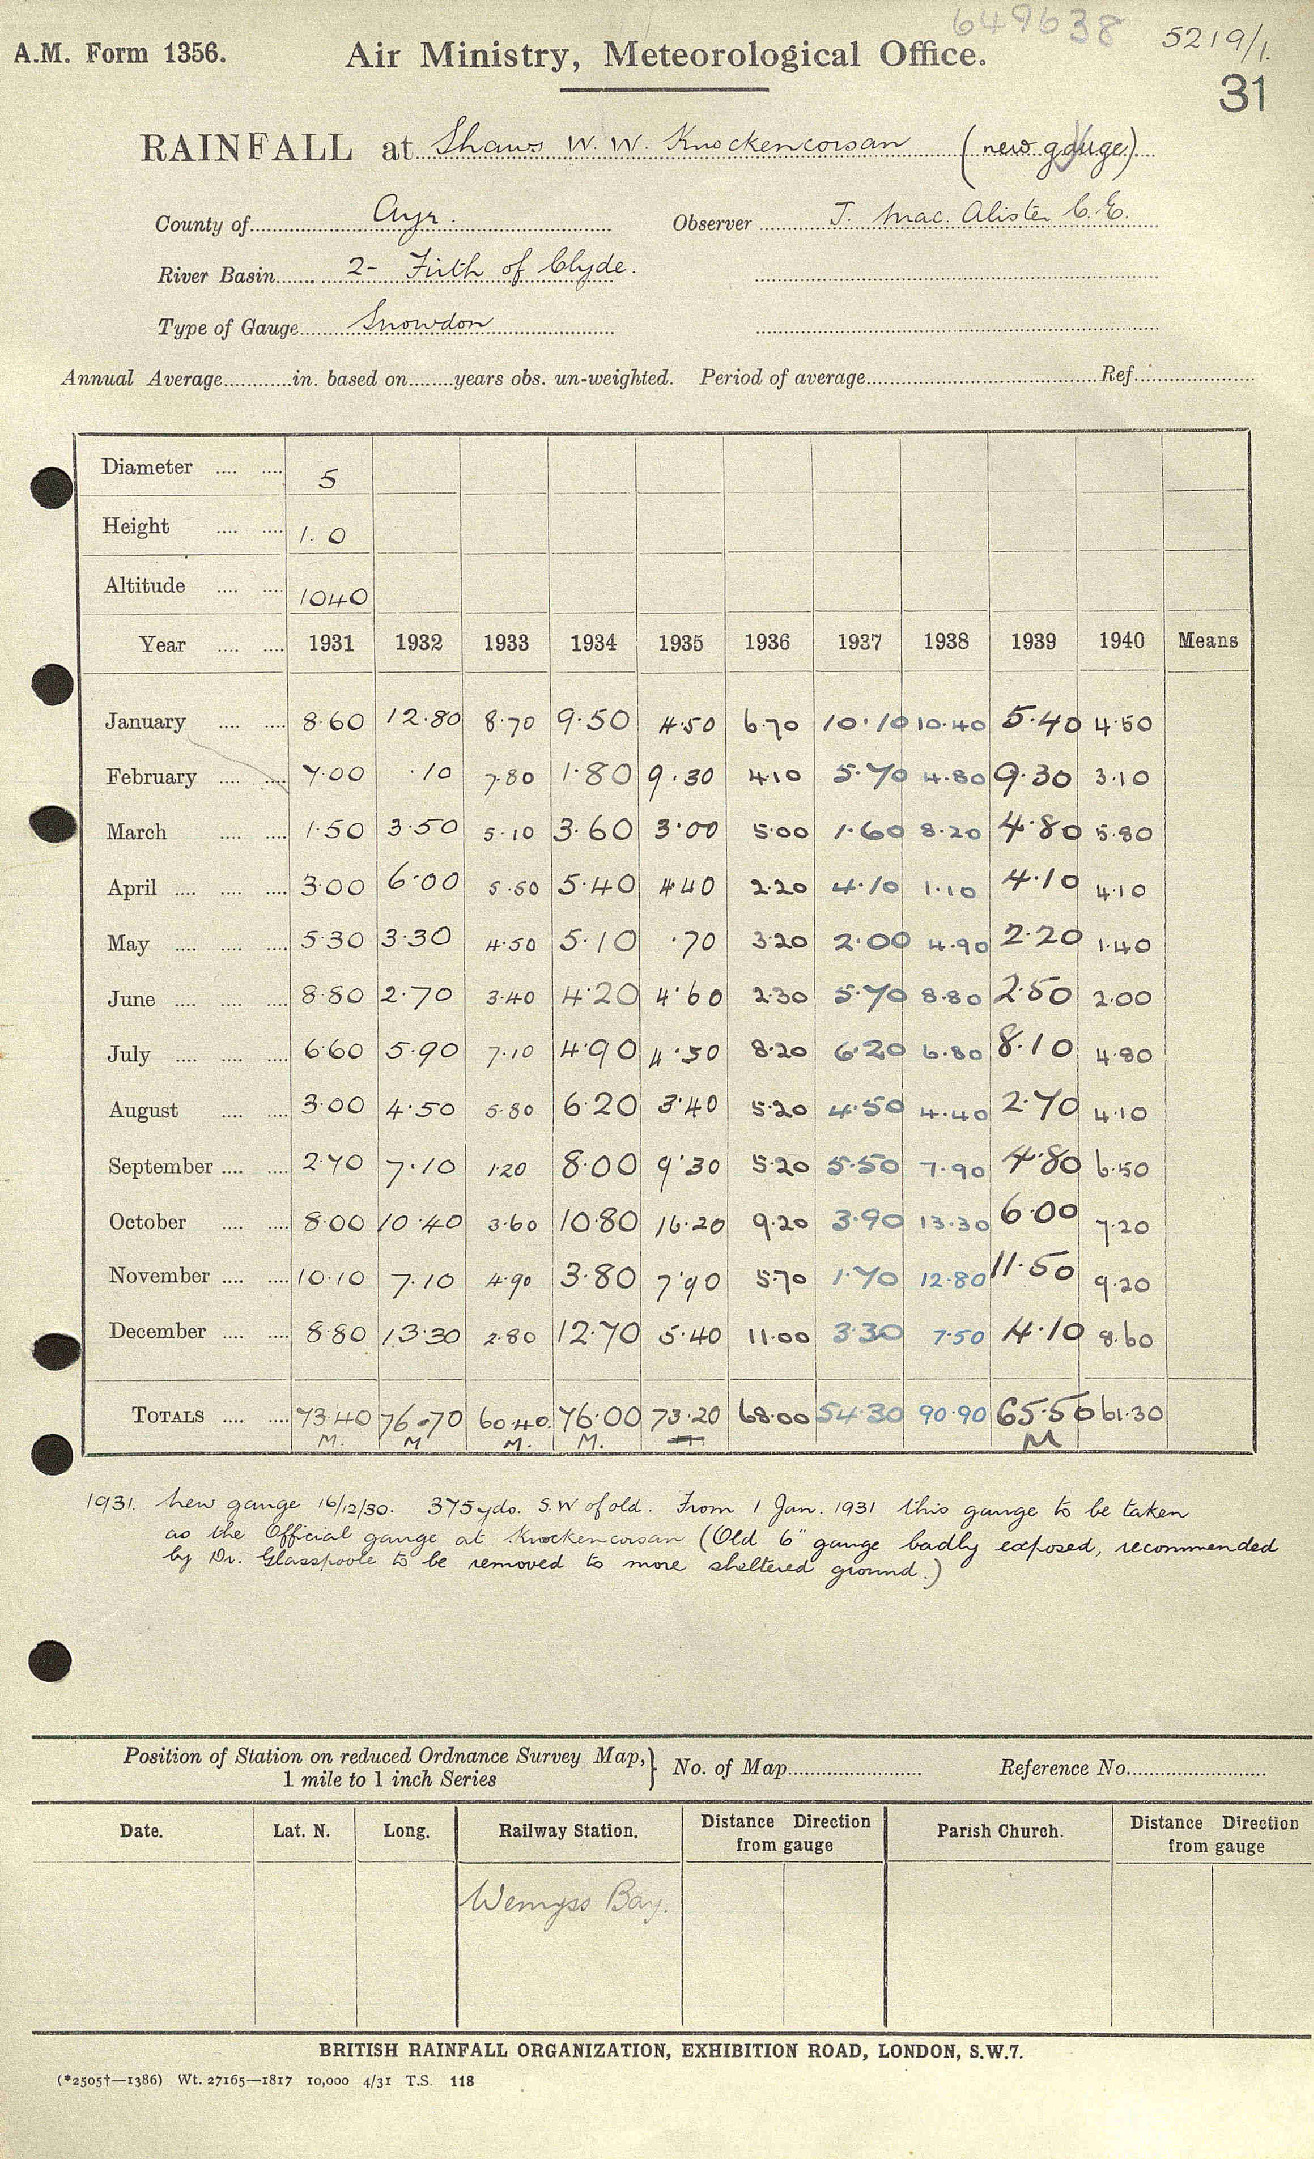 649638
5219/1.
A.M. Form 1356. Air Ministry, Meteorological Office.
31
RAINFALL at Shaws W. W. Knockencorsan (new gauge)
County of Ayr. Observer J. Mac. Alister C.E.
River Basin 2- Firth of Clyde.
Type of Gauge Snowdon
Annual Average in. based on years obs. un-weighted. Period of average Ref.
Diameter 5
Height 1.0
Altitude 1040
Year 1931 1932 1933 1934 1935 1936 1937 1938 1939 1940 Means
January 8.60 12.80 8.70 9.50 4.50 6.70 10.10 10.40 5.40 4.50
February 7.00 .10 7.80 1.80 9.30 4.10 5.70 4.80 9.30 3.10
March 1.50 3.50 5.10 3.60 3.00 5.00 1.60 8.20 4.80 5.80
April 3.00 6.00 5.50 5.40 4.40 2.20 4.10 1.10 4.10 4.10
May 5.30 3.30 4.50 5.10 .70 3.20 2.00 4.90 2.20 1.40
June 8.80 2.70 3.40 4.20 4.60 2.30 5.70 8.80 2.50 2.00
July 6.60 5.90 7.10 4.90 4.50 8.20 6.20 6.80 8.10 4.80
August 3.00 4.50 5.80 6.20 3.40 5.20 4.50 4.40 2.70 4.10
September 2.70 7.10 1.20 8.00 9.30 5.20 5.50 7.90 4.80 6.50
October 8.00 10.40 3.60 10.80 16.20 9.20 3.90 13.30 6.00 7.20
November 10.10 7.10 4.90 3.80 7.90 5.70 1.70 12.80 11.50 9.20
December 8.80 13.30 2.80 12.70 5.40 11.00 3.30 7.50 4.10 8.60
TOTALS 73.40 76.70 60.40 76.00 73.20 68.00 54.30 90.90 65.50 61.30
M. M M. M. M
1931. New gauge 16/12/30. 375 yds. S.W of old. From 1 Jan. 1931 this gauge to be taken
as the Official gauge at Knockencorsan (Old 6" gauge badly exposed, recommended
by Dr. Glasspoole to be removed to more sheltered ground.)
Position of Station on reduced Ordnance Survey Map, } No. of Map Reference No.
1 mile to 1 inch Series
Date. Lat. N. Long. Railway Station. Distance Direction from gauge Parish Church. Distance Direction from gauge
Wemyss Bay.
BRITISH RAINFALL ORGANIZATION, EXHIBITION ROAD, LONDON, S.W.7.
(*2505†—1386) Wt. 27165—1817 10,000 4/31 T.S. 118